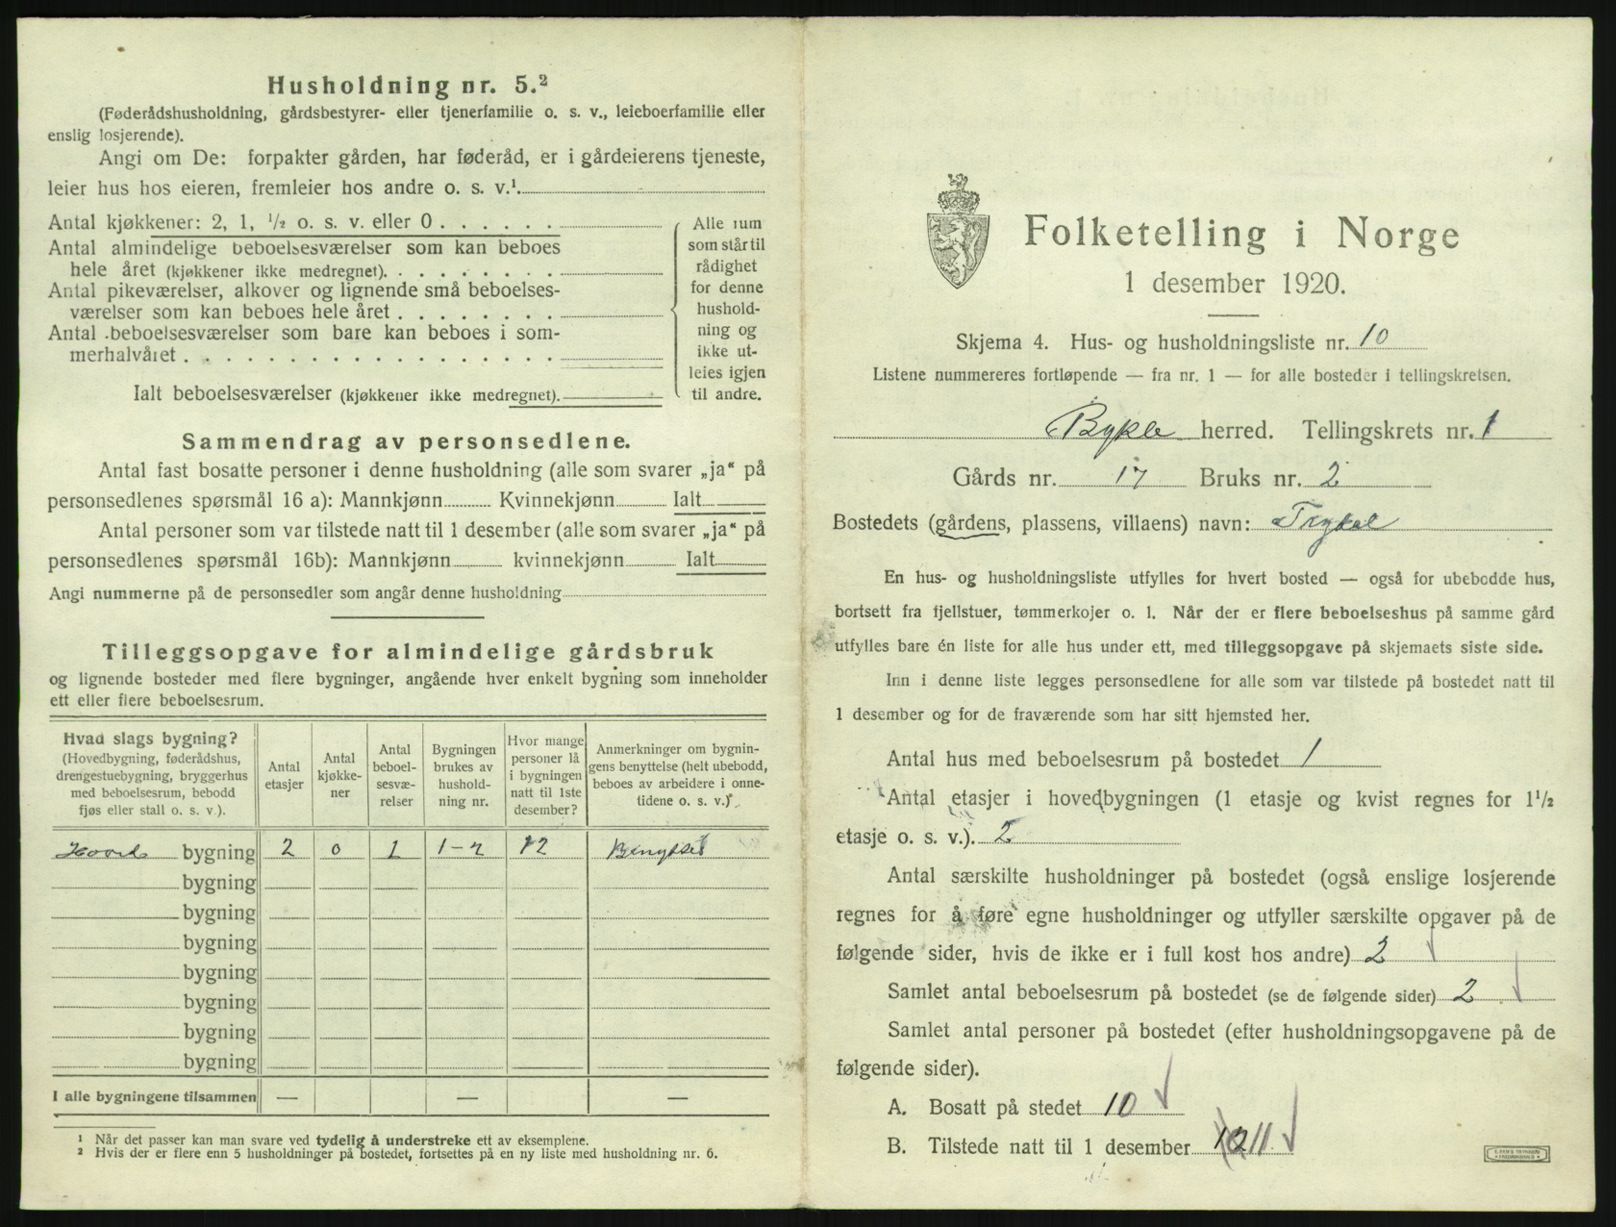 Husholdning nr. 5.²
(Føderådshusholdning, gårdsbestyrer- eller tjenerfamilie o. s. v., leieboerfamilie eller
enslig losjerende).
Angi om De: forpakter gården, har føderåd, er i gårdeierens tjeneste,
leier hus hos eieren, fremleier hos andre o. s. v.¹
Antal kjøkkener: 2, 1, ½ o. s. v. eller 0 . . . . . .
Antal almindelige beboelsesværelser som kan beboes
hele året (kjøkkener ikke medregnet). . . . . . . . .
Antal pikeværelser, alkover og lignende små beboelses-
værelser som kan beboes hele året . . . . . . . .
Antal beboelsesværelser som bare kan beboes i som-
merhalvåret . . . . . . . . . . . . . . . . . .
Ialt beboelsesværelser (kjøkkener ikke medregnet).
Alle rum
som står til
rådighet
for denne
hushold-
ning og
ikke ut-
leies igjen
til andre.
Sammendrag av personsedlene.
Antal fast bosatte personer i denne husholdning (alle som svarer „ja“ på
personsedlenes spørsmål 16 a): Mannkjønn Kvinnekjønn Ialt
Antal personer som var tilstede natt til 1 desember (alle som svarer „ja“ på
personsedlenes spørsmål 16b): Mannkjønn kvinnekjønn Ialt
Angi nummerne på de personsedler som angår denne husholdning
Tilleggsopgave for almindelige gårdsbruk
og lignende bosteder med flere bygninger, angående hver enkelt bygning som inneholder
ett eller flere beboelsesrum.
Hvad slags bygning?
(Hovedbygning, føderådshus,
drengestuebygning, bryggerhus
med beboelsesrum, bebodd
fjøs eller stall o. s. v.).
Antal
etasjer
Antal
kjøkke-
ner
Antal
beboel-
sesvæ-
relser
Bygningen
brukes av
hushold-
ning nr.
Hvor mange
personer lå
i bygningen
natt til 1ste
desember?
Anmerkninger om bygnin-
gens benyttelse (helt ubebodd,
beboes av arbeidere i onne-
tidene o. s. v.)
Hoved bygning 2 0 1 1-2 12 Benyttet
bygning
bygning
bygning
bygning
bygning
bygning
bygning
I alle bygningene tilsammen — — —
¹ Når det passer kan man svare ved tydelig å understreke ett av eksemplene.
² Hvis der er flere enn 5 husholdninger på bostedet, fortsettes på en ny liste med husholdning nr. 6.
Folketelling i Norge
1 desember 1920.
Skjema 4. Hus- og husholdningsliste nr. 10
Listene nummereres fortløpende — fra nr. 1 — for alle bosteder i tellingskretsen.
Bykle herred. Tellingskrets nr. 1
Gårds nr. 17 Bruks nr. 2
Bostedets (gårdens, plassens, villaens) navn:
En hus- og husholdningsliste utfylles for hvert bosted — også for ubebodde hus,
bortsett fra fjellstuer, tømmerkojer o. l. Når der er flere beboelseshus på samme gård
utfylles bare én liste for alle hus under ett, med tilleggsopgave på skjemaets siste side.
Inn i denne liste legges personsedlene for alle som var tilstede på bostedet natt til
1 desember og for de fraværende som har sitt hjemsted her.
Antal hus med beboelsesrum på bostedet 1
Antal etasjer i hovedbygningen (1 etasje og kvist regnes for 1½
etasje o. s. v.). 2
Antal særskilte husholdninger på bostedet (også enslige losjerende
regnes for å føre egne husholdninger og utfyller særskilte opgaver på de
følgende sider, hvis de ikke er i full kost hos andre) 2
Samlet antal beboelsesrum på bostedet (se de følgende sider) 2
Samlet antal personer på bostedet (efter husholdningsopgavene på de
følgende sider).
A. Bosatt på stedet 10
B. Tilstede natt til 1 desember 11